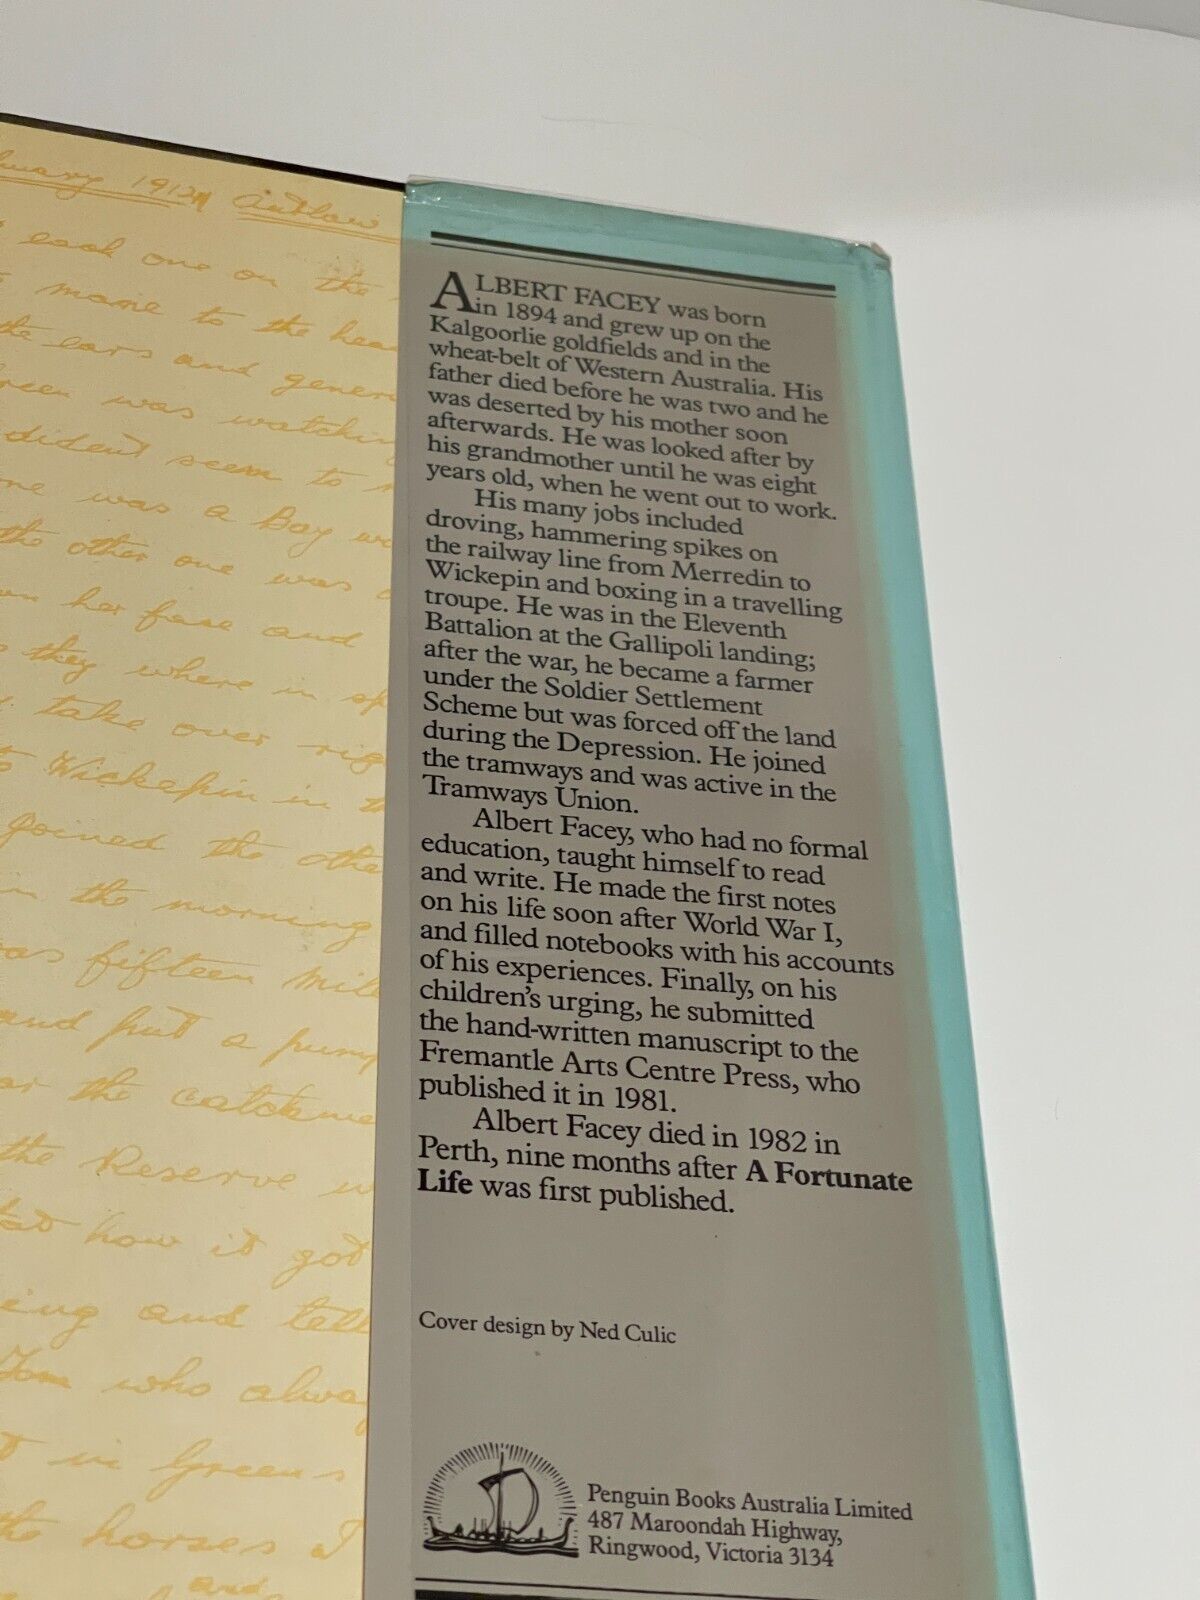 1912 Outlaw
each one on the
to the
the ears and
was watching
dident seem to
was a Bay
the other one was
her face and
they where in
take over
Wickepin in
joined the othe
in the morning
fifteen mile
and put a pump
the catchme
the Reserve
how it got
and tell
Tom who alway
in Greens
the horses I
and
ALBERT FACEY was born
in 1894 and grew up on the
Kalgoorlie goldfields and in the
wheat-belt of Western Australia. His
father died before he was two and he
was deserted by his mother soon
afterwards. He was looked after by
his grandmother until he was eight
years old, when he went out to work.
His many jobs included
droving, hammering spikes on
the railway line from Merredin to
Wickepin and boxing in a travelling
troupe. He was in the Eleventh
Battalion at the Gallipoli landing;
after the war, he became a farmer
under the Soldier Settlement
Scheme but was forced off the land
during the Depression. He joined
the tramways and was active in the
Tramways Union.
Albert Facey, who had no formal
education, taught himself to read
and write. He made the first notes
on his life soon after World War I,
and filled notebooks with his accounts
of his experiences. Finally, on his
children's urging, he submitted
the hand-written manuscript to the
Fremantle Arts Centre Press, who
published it in 1981.
Albert Facey died in 1982 in
Perth, nine months after A Fortunate
Life was first published.
Cover design by Ned Culic
Penguin Books Australia Limited
487 Maroondah Highway,
Ringwood, Victoria 3134